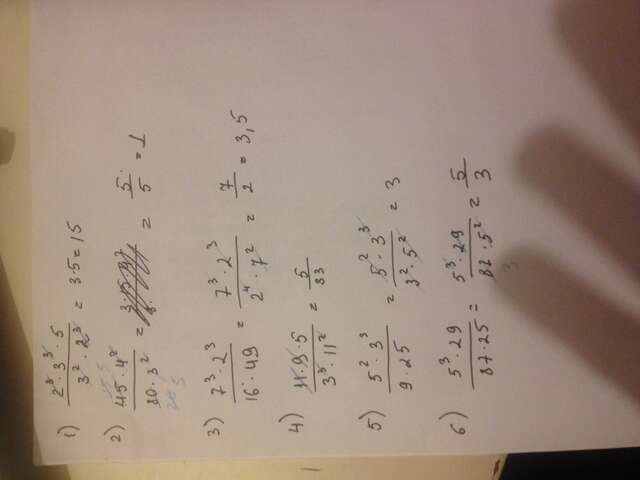 1) 2³·3³·5 / 3²·2³ = 3·5 = 15
2) 45·4² / 80·3² = = 5/5 = 1
3) 7³·2³ / 16·49 = 7³·2³ / 2⁴·7² = 7/2 = 3,5
4) 11·9·5 / 3³·11² = 5/33
5) 5²·3³ / 9·25 = 5²·3³ / 3²·5² = 3
6) 5³·29 / 87·25 = 5³·29 / 87·5² = 5/3